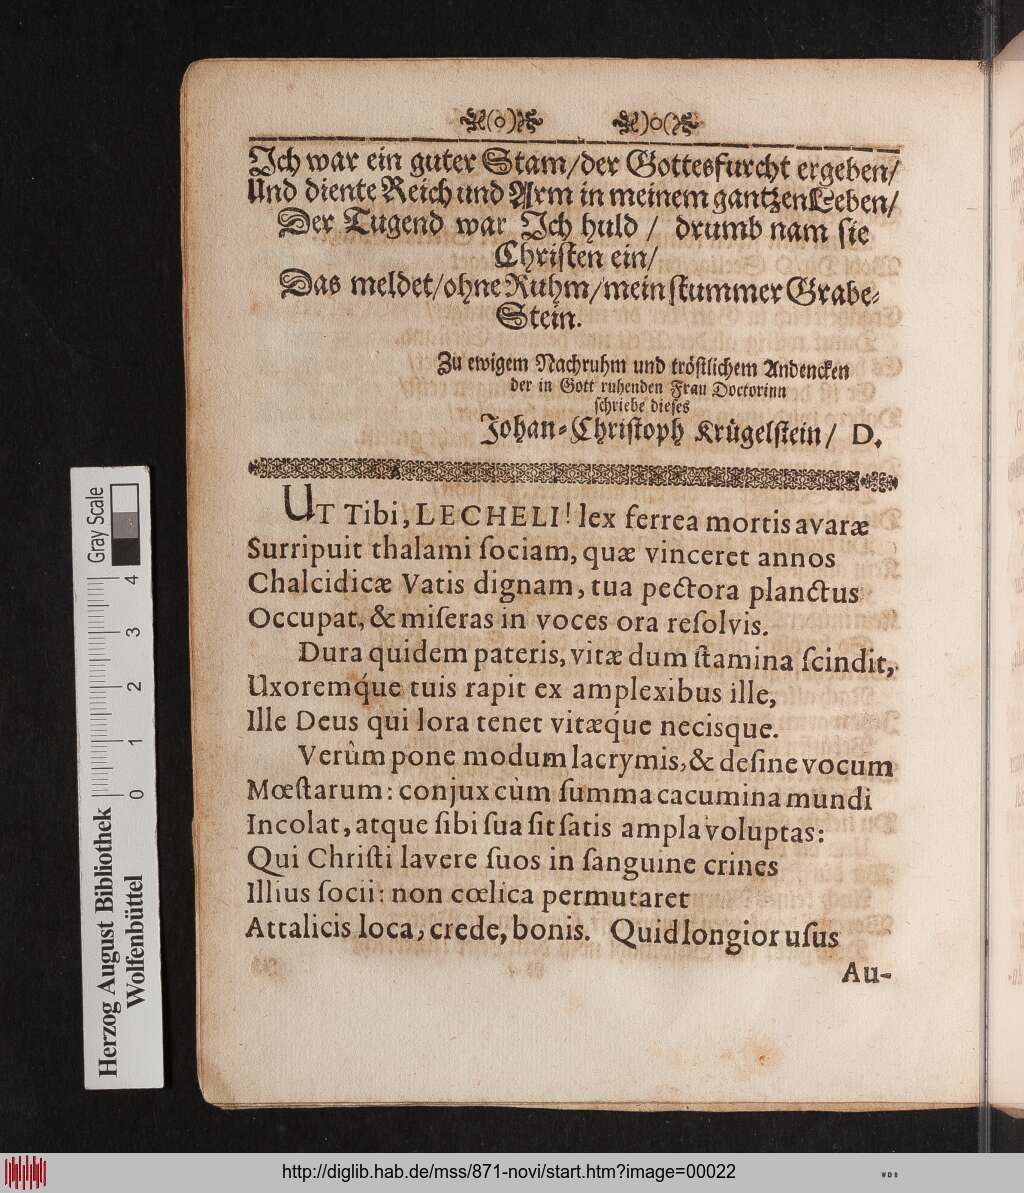 Ich war ein guter Stam/der Gottesfurcht ergeben/
Und diente Reich und Arm in meinem gantzen Leben/
Der Tugend war Ich huld / drumb nam sie
Christen ein/
Das meldet/ohne Ruhm/mein stummer Grabe⸗
Stein.
Zu ewigem Nachruhm und tröstlichem Andencken
der in Gott ruhenden Frau Doctorinn
schriebe dieses
Johan⸗Christoph Krügelstein/ D.
UT Tibi, LECHELI! lex ferrea mortis avaræ
Surripuit thalami ſociam, quæ vinceret annos
Chalcidicæ Vatis dignam, tua pectora planctus
Occupat, & miſeras in voces ora reſolvis.
Dura quidem pateris, vitæ dum ſtamina ſcindit,
Uxoremq́ue tuis rapit ex amplexibus ille,
Ille Deus qui lora tenet vitæq́ue necisque.
Verùm pone modum lacrymis, & deſine vocum
Mœſtarum: conjux cùm ſumma cacumina mundi
Incolat, atque ſibi ſua ſit ſatis ampla voluptas:
Qui Chriſti lavere ſuos in ſanguine crines
Illius ſocii: non cœlica permutaret
Attalicis loca, crede, bonis. Quid longior uſus
Au-
Gray Scale
4
3
2
1
0
Herzog August Bibliothek
Wolfenbüttel
http://diglib.hab.de/mss/871-novi/start.htm?image=00022